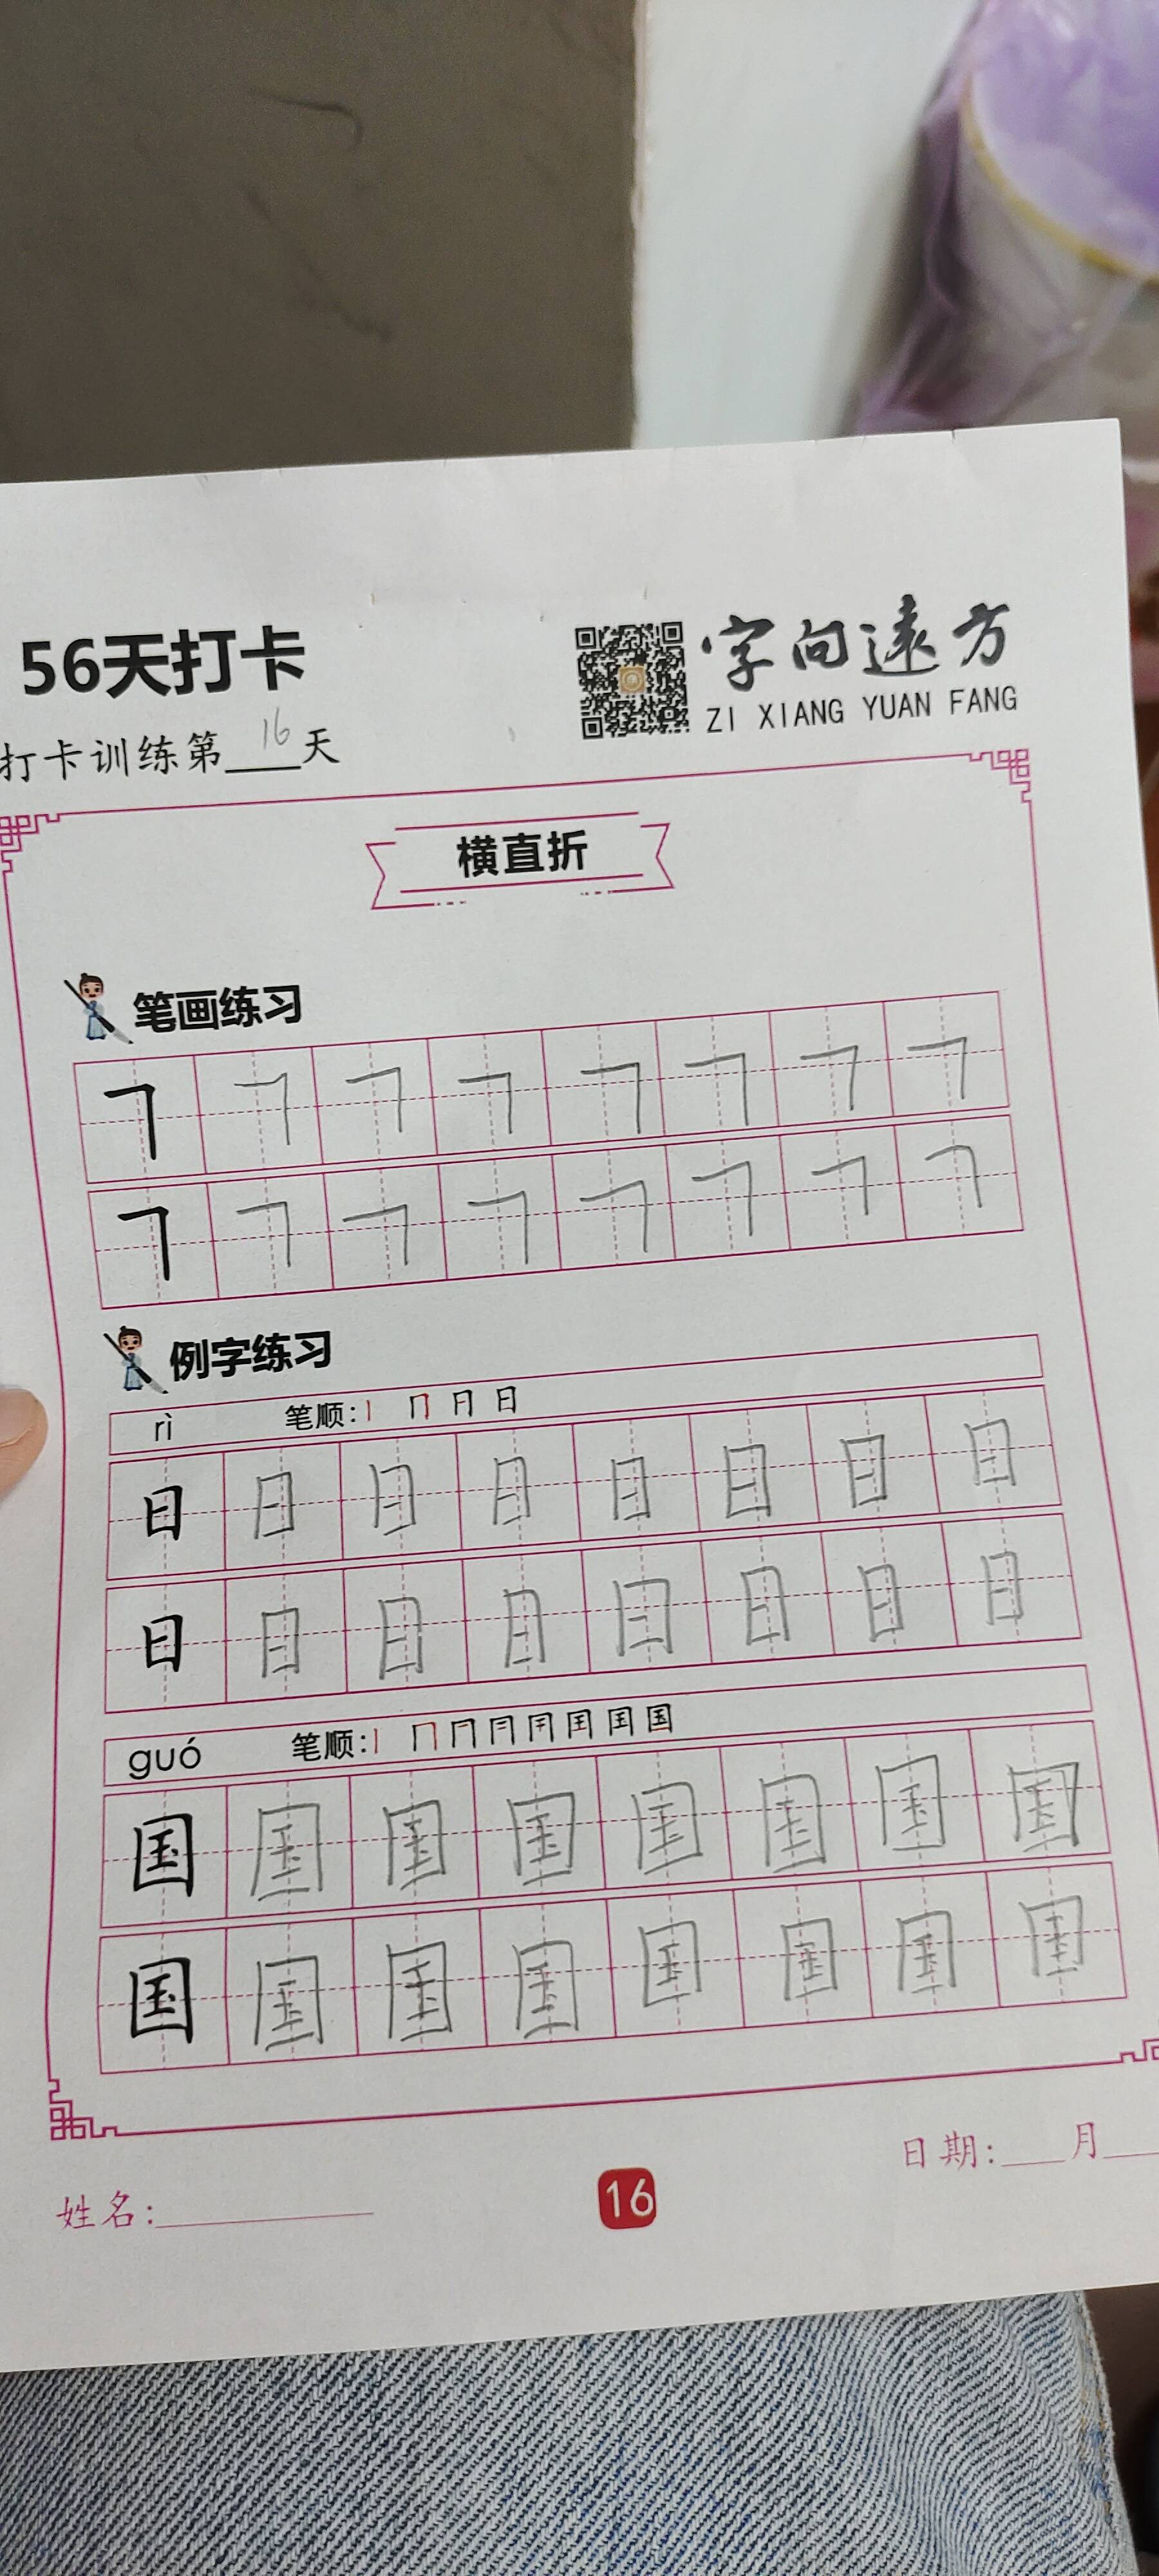 56天打卡
字向遠方
ZI XIANG YUAN FANG
打卡训练第16天
横直折
笔画练习
㇕ ㇕ ㇕ ㇕ ㇕ ㇕ ㇕ ㇕
㇕ ㇕ ㇕ ㇕ ㇕ ㇕ ㇕ ㇕
例字练习
rì 笔顺:丨 冂 日 日
日 日 日 日 日 日 日 日
日 日 日 日 日 日 日 日
guó 笔顺:丨 冂 国
国 国 国 国 国 国 国 国
国 国 国 国 国 国 国 国
日期:___月___
姓名:
16